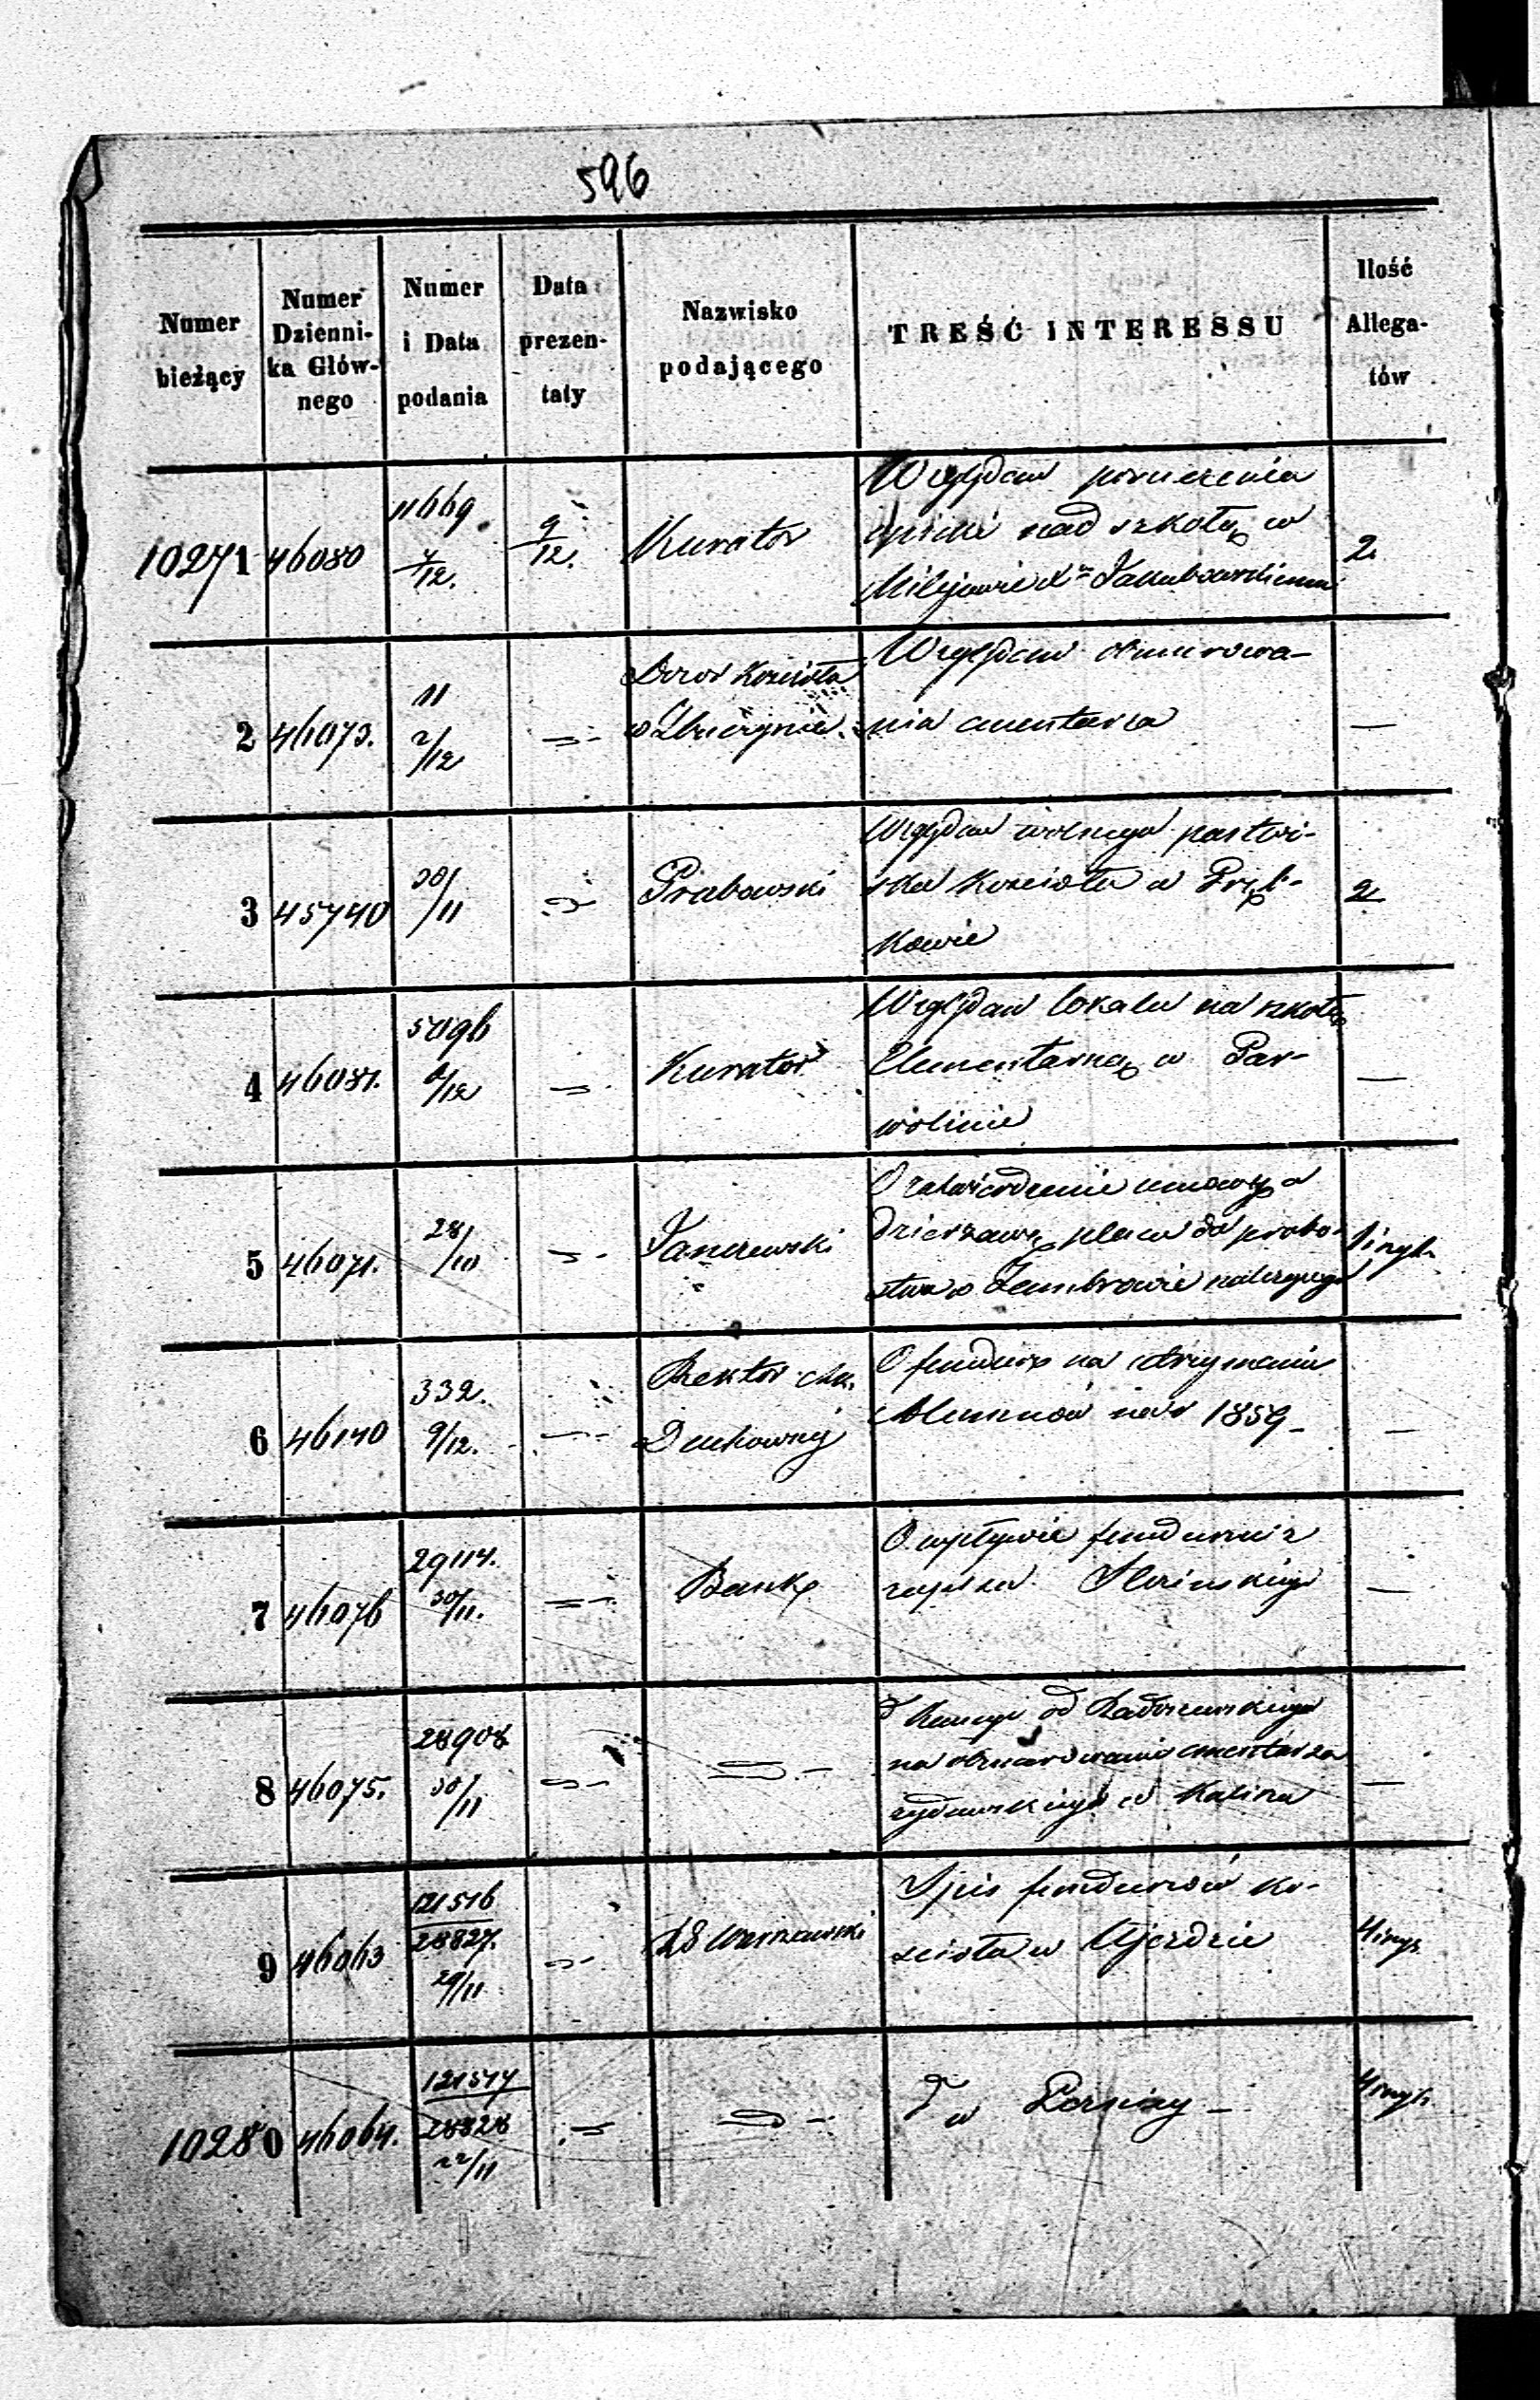 596
Numer bieżący
Numer Dzienni-ka Głów-nego
Numer i Data podania
Data prezen-taty
Nazwisko podającego
TREŚĆ INTERESSU
Ilość Allega-tów
10271 46080 11669 7/12. 9/12. Kurator 2.
Względem poruczenia
opieki nad szkołą w
Milejowie Jakubowskiemu
2 46073. 11 2/12 Dozór Kościoła —
w Zbuczynie.
Względem obmurowa-
nia cmentarza
3 45740 30/11 Grabowski 2
Względem wolnego pastwi-
ska Kościoła w
kowie
4 46081. 5096 /12 Kurator —
Względem lokalu na szkołę
Elementarną w Par-
wolinie
5 46071. 28/10 Janczewski
O zatwierdzenie umowy o
dzierżawę placu do probo-
stwa w Zambrowie należącego
6 46140 332. 9/12. Rektor Ak. —
Duchownej
O fundusz na utrzymanie
Alumnów na r 1859 -
7 46076 29114. 30/11. Bank —
O wpływie funduszu z
zapisu
8 46075. 28908 30/11 —
od Radoszewskiego
na obmurowanie cmentarza
żydowskiego w Kalisza
9 46063 121516 28827. 29/11 RG Warszawski
Spis funduszów ko-
ścioła w Ujeździe
10280 46064. 121517 28828 22/11
w